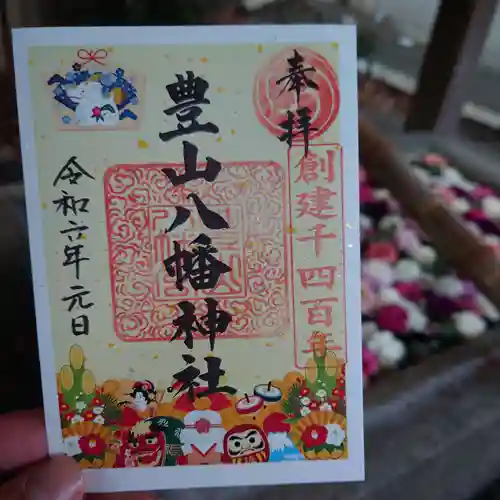 奉拝
創建千四百年
豊山八幡神社
令和六年元日